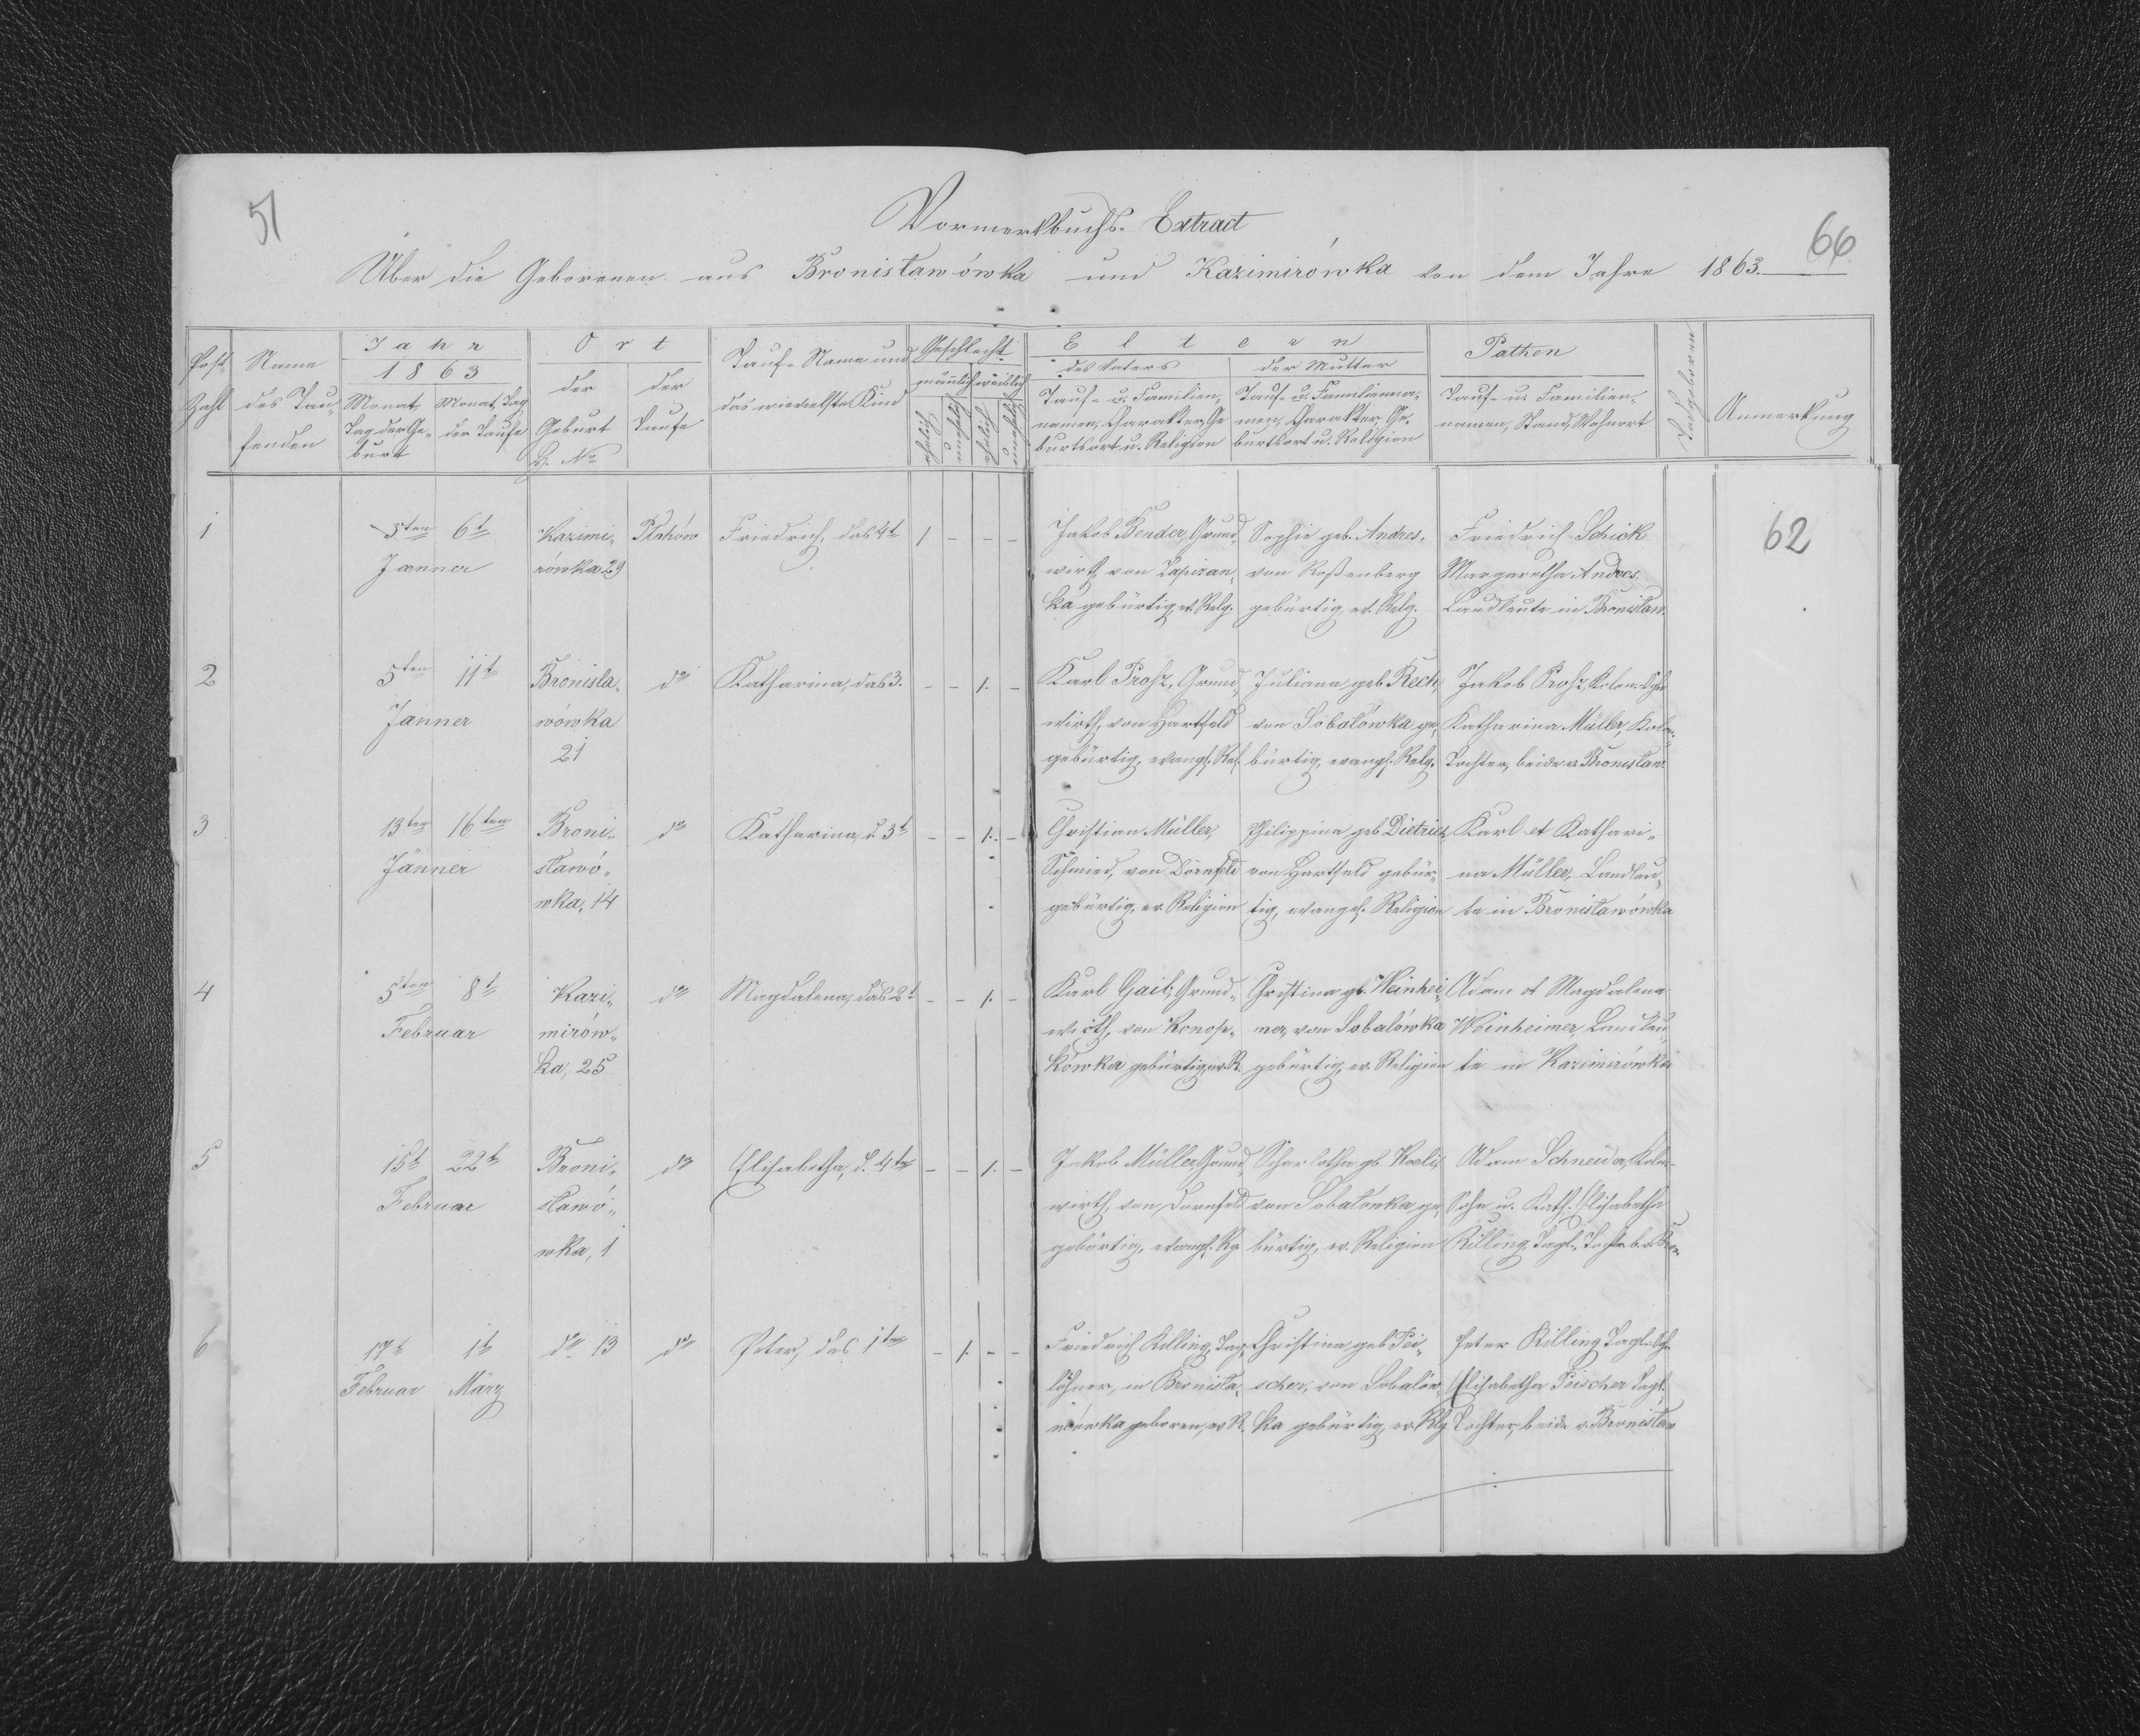 51
66
Vormerkbuchs-Extract
Über die Geborenen aus Bronisławówka und Kazimirówka von dem Jahre 1863.
Post-Zahl
Name des Taufenden
Jahr
1863
Monat, Tag der Geburt
Monat, Tag der Taufe
Ort
der Geburt H. No
der Taufe
Tauf-Name und das wievielste Kind
Geschlecht
mänlich weiblich
ehelich
unehelich
ehelich
unehelich
Eltern
des Vaters
Tauf- u. Familien-
namen, Charakter, Ge
burtsort u. Religion
der Mutter
Tauf- u. Familienna-
men, Charakter, Ge-
burtsort u. Religion
Pathen
Tauf- u. Familien-
namen, Stand, Wohnort
Todgeboren
Anmerkung
62
1
5ten 6t
Jænner
Kazimi-
rówka 29
Płuhów
Friedrich, das 4t
1 - - -
Jakob Bender, Grund-
wirth, von
ka gebürtig, ev. Relg.
Sophie geb. Andres,
von Roßenberg
gebürtig, ev. Relg.
Friedrich Schick
Margaretha Andres,
Landleute in Bronisław.
2
5ten 11t
Janner
Bronisła-
wówka
21
do
Katharina, das 3.
- - 1. -
Karl Prosz, Grund-
wirth, von Hartfeld
gebürtig, evangl. Rel.
Juliana geb. Rech,
von Sobołówka ge-
bürtig, evangl. Relg.
Jakob Prosz, Kolon.
Katharina Müller, Kolon.
Tochter, beide v. Bronisław.
3
13ten 16ten
Jänner
Broni-
sławó-
wka, 14
do
Katharina, d. 3t
- - 1. -
Christian Müller,
Schmied, von Dornfeld
gebürtig, ev. Religion
Philippina geb. Dietrich,
von Hartfeld gebür-
tig, evangel. Religion
Karl et Kathari-
na Müller, Landleu-
te in Bronisławówka
4
5ten 8t
Februar
Kazi-
mirów-
ka, 25
do
Magdalena, das 2t
- - 1. -
Karl Gaib, Grund-
wirth, von Konop-
kówka gebürtig, ev. R.
Christina gb. Weinhei-
mer, von Sobalówka
gebürtig, ev. Religion
Adam et Magdalena
Weinheimer, Landleu-
te in Kazimirówka
5
15t 22t
Februar
Broni-
sławó-
wka, 1
do
Elisabetha, d. 4te
- - 1. -
Jakob Müller, Grund-
wirth, von Dornfeld
gebürtig, evangl. Rg.
Scharlotha gb.
von Sobałówka ge-
bürtig, ev. Religion
Adam Schneider, Kolon-
Sohn u. Kath. Elisabetha
Killing, Tagl. Tochter b. v. Bron.
6
17t 1t
Februar März
do 13
do
Peter, das 1te
- 1. - -
Friedrich Killing, Tag-
löhner, in Bronisła-
wówka geboren, ev. R.
Christina geb. Pei-
scher, von Sobalów-
ka gebürtig, ev. Rlg.
Peter Killing Tagl.
Elisabetha Peischer Tagl.
Tochter, beide v. Bronisław